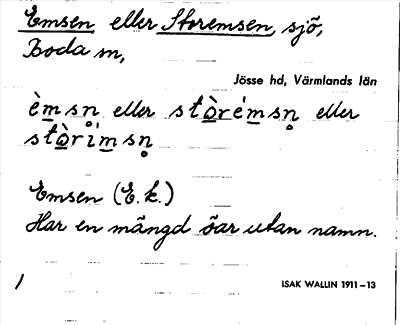 Emsen eller Storemsen, sjö,
Boda sn,
Jösse hd, Värmlands län
èmsn eller stòrémsn̥ eller
stòri̊msn̥
Emsen (E.k.)
Har en mängd öar utan namn.
/ ISAK WALLIN 1911–13